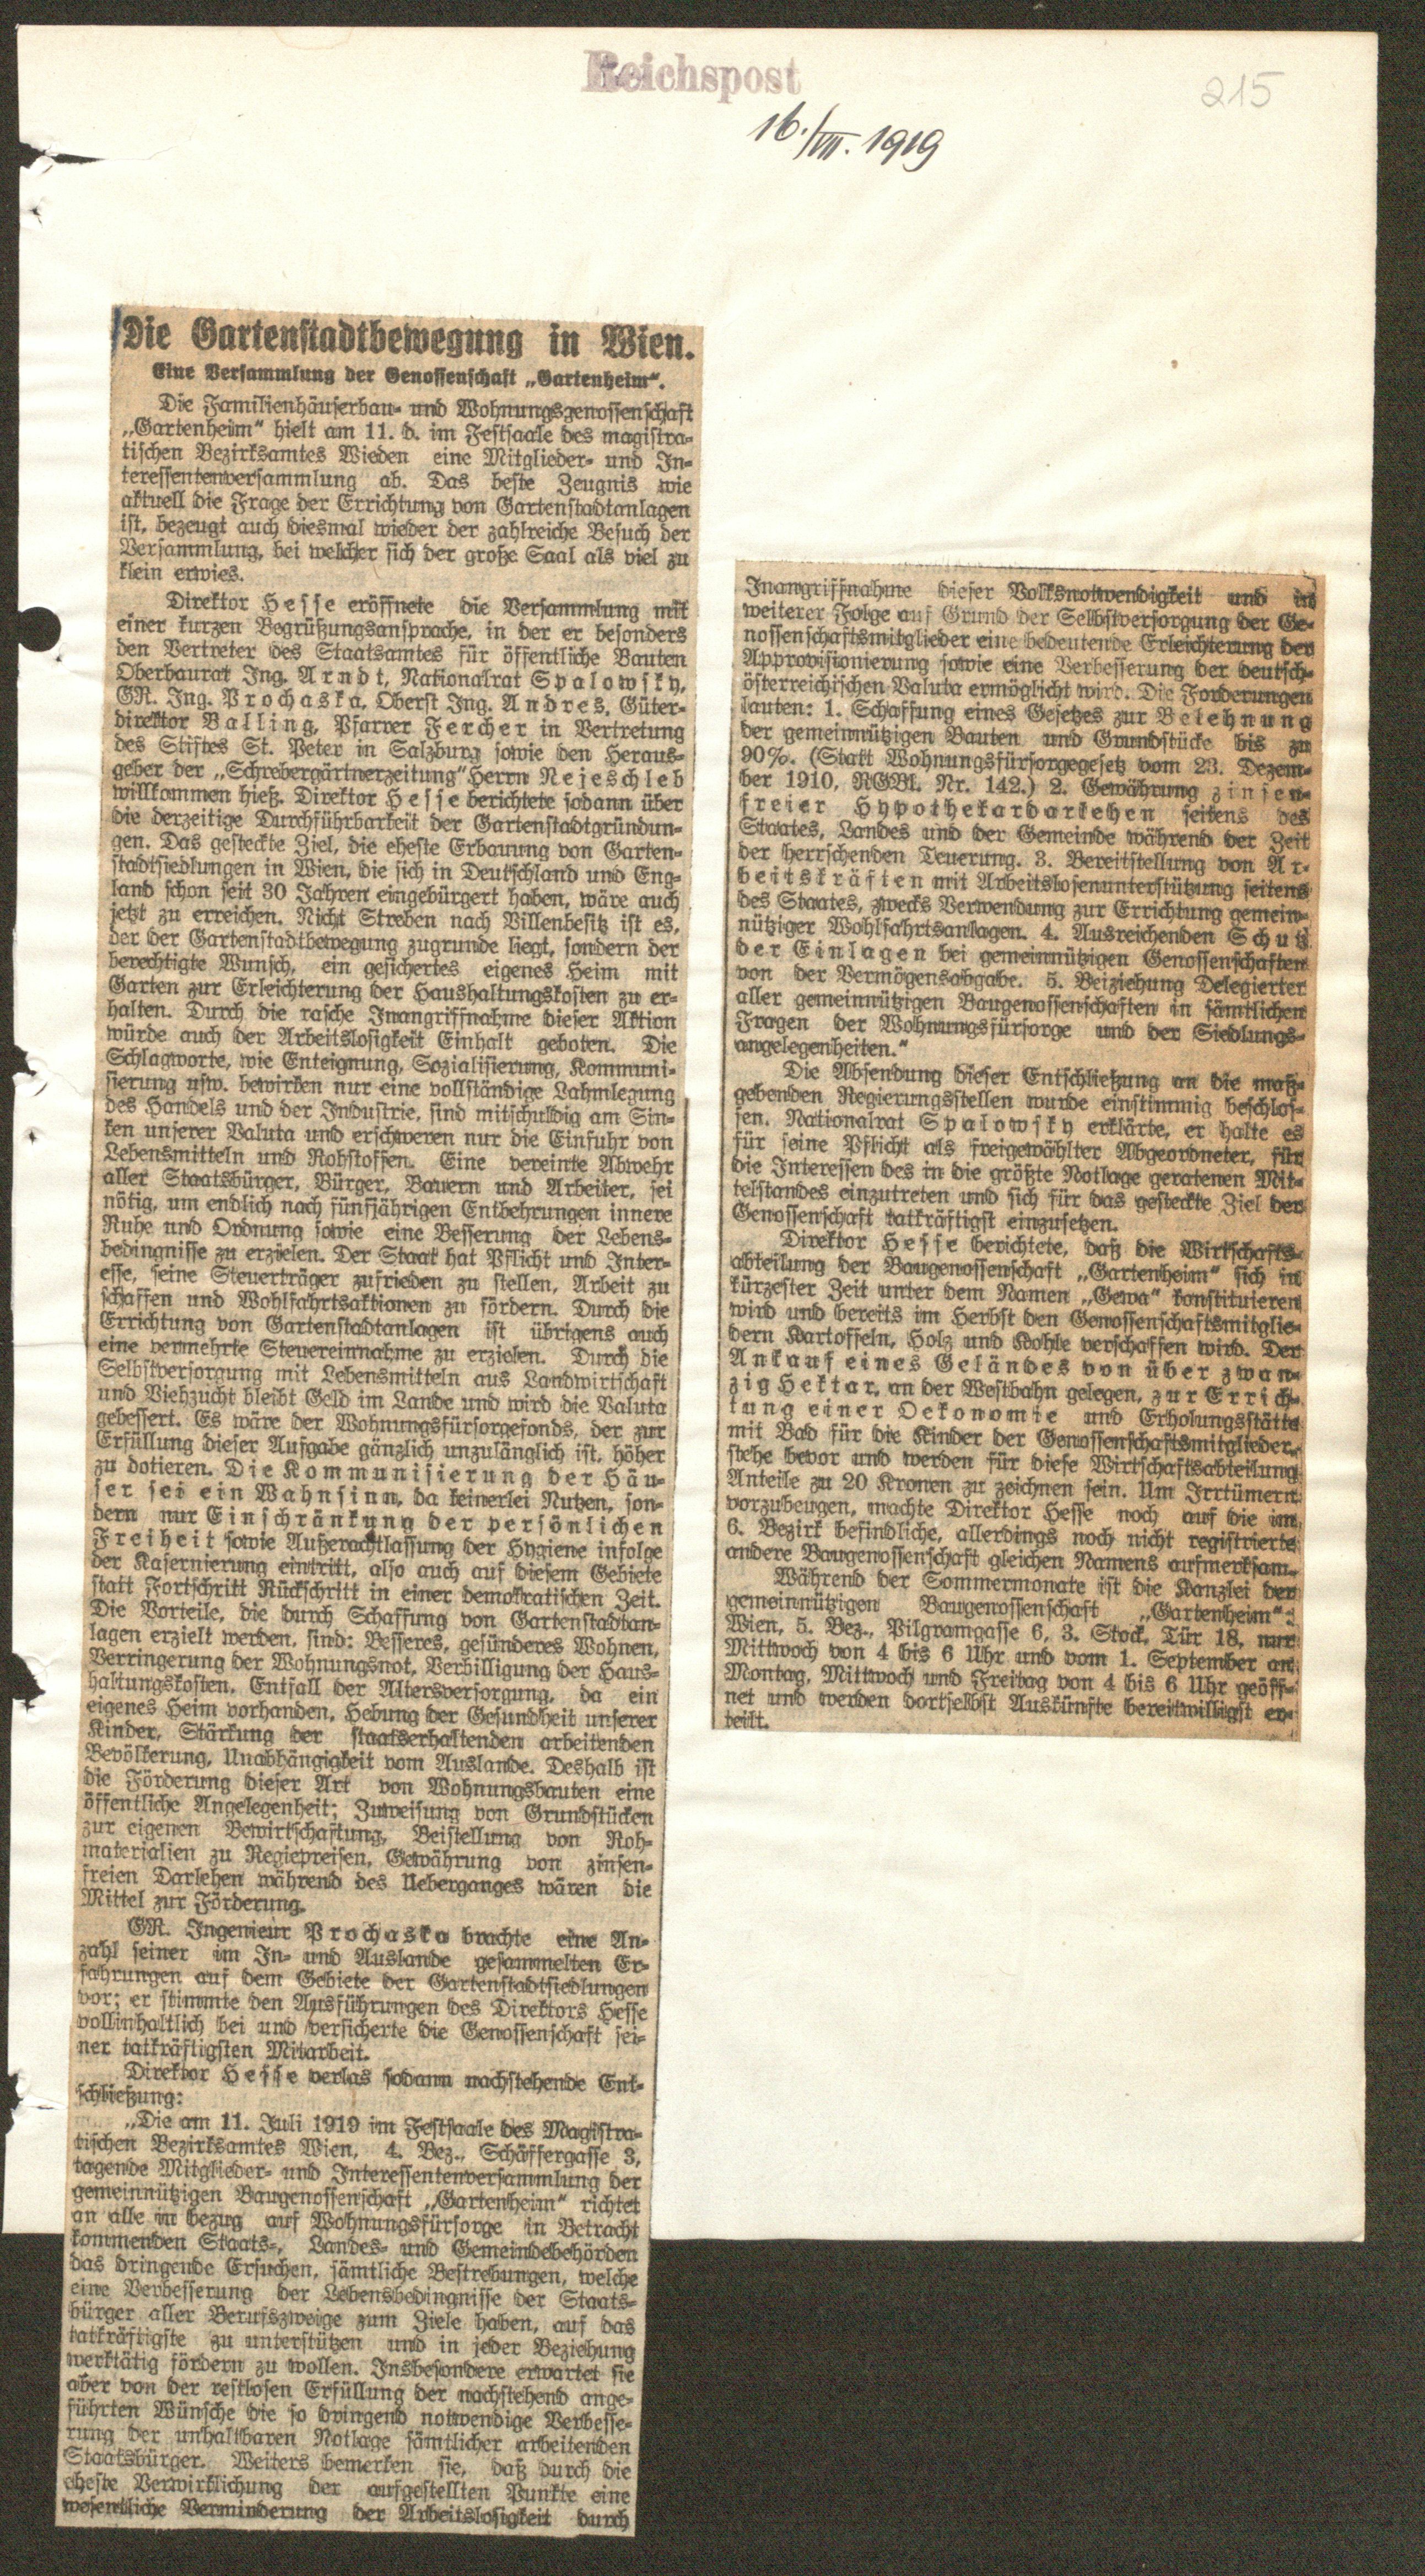 Reichspost
215
16./VII. 1919
Die Gartenstadtbewegung in Wien.
Eine Versammlung der Genossenschaft „Gartenheim“.
Die Familienhäuserbau- und Wohnungsgenossenschaft
„Gartenheim“ hielt am 11. d. im Festsaale des magistra-
tischen Bezirksamtes Wieden eine Mitglieder- und In-
teressentenversammlung ab. Das beste Zeugnis wie
aktuell die Frage der Errichtung von Gartenstadtanlagen
ist, bezeugt auch diesmal wieder der zahlreiche Besuch der
Versammlung, bei welcher sich der große Saal als viel zu
klein erwies.
Direktor Hesse eröffnete die Versammlung mit
einer kurzen Begrüßungsansprache, in der er besonders
den Vertreter des Staatsamtes für öffentliche Bauten
Oberbaurat Ing. Arndt, Nationalrat Spalowsky,
GR. Ing. Prochaska, Oberst Ing. Andres, Güter-
direktor Balling, Pfarrer Fercher in Vertretung
des Stiftes St. Peter in Salzburg sowie den Heraus-
geber der „Schrebergärtnerzeitung“ Herrn Nejeschleb
willkommen hieß. Direktor Hesse berichtete sodann über
die derzeitige Durchführbarkeit der Gartenstadtgründun-
gen. Das gesteckte Ziel, die eheste Erbauung von Garten-
stadtsiedlungen in Wien, die sich in Deutschland und Eng-
land schon seit 30 Jahren eingebürgert haben, wäre auch
jetzt zu erreichen. Nicht Streben nach Villenbesitz ist es,
der der Gartenstadtbewegung zugrunde liegt, sondern der
berechtigte Wunsch, ein gesichertes eigenes Heim mit
Garten zur Erleichterung der Haushaltungskosten zu er-
halten. Durch die rasche Inangriffnahme dieser Aktion
würde auch der Arbeitslosigkeit Einhalt geboten. Die
Schlagworte, wie Enteignung, Sozialisierung, Kommuni-
sierung usw. bewirken nur eine vollständige Lahmlegung
des Handels und der Industrie, sind mitschuldig am Sin-
ken unserer Valuta und erschweren nur die Einfuhr von
Lebensmitteln und Rohstoffen. Eine vereinte Abwehr
aller Staatsbürger, Bürger, Bauern und Arbeiter, sei
nötig, um endlich nach fünfjährigen Entbehrungen innere
Ruhe und Ordnung sowie eine Besserung der Lebens-
bedingnisse zu erzielen. Der Staat hat Pflicht und Inter-
esse, seine Steuerträger zufrieden zu stellen, Arbeit zu
schaffen und Wohlfahrtsaktionen zu fördern. Durch die
Errichtung von Gartenstadtanlagen ist übrigens auch
eine vermehrte Steuereinnahme zu erzielen. Durch die
Selbstversorgung mit Lebensmitteln aus Landwirtschaft
und Viehzucht bleibt Geld im Lande und wird die Valuta
gebessert. Es wäre der Wohnungsfürsorgefonds, der zur
Erfüllung dieser Aufgabe gänzlich unzulänglich ist, höher
zu dotieren. Die Kommunisierung der Häu-
ser sei ein Wahnsinn, da keinerlei Nutzen, son-
dern nur Einschränkung der persönlichen
Freiheit sowie Außerachtlassung der Hygiene infolge
der Kasernierung eintritt, also auch auf diesem Gebiete
statt Fortschritt Rückschritt in einer demokratischen Zeit.
Die Vorteile, die durch Schaffung von Gartenstadtan-
lagen erzielt werden, sind: Besseres, gesünderes Wohnen,
Verringerung der Wohnungsnot, Verbilligung der Haus-
haltungskosten, Entfall der Altersversorgung, da ein
eigenes Heim vorhanden, Hebung der Gesundheit unserer
Kinder, Stärkung der staatserhaltenden arbeitenden
Bevölkerung, Unabhängigkeit vom Auslande. Deshalb ist
die Förderung dieser Art von Wohnungsbauten eine
öffentliche Angelegenheit; Zuweisung von Grundstücken
zur eigenen Bewirtschaftung, Beistellung von Roh-
materialien zu Regiepreisen, Gewährung von zinsen-
freien Darlehen während des Ueberganges wären die
Mittel zur Förderung.
GR. Ingenieur Prochaska brachte eine An-
zahl seiner im In- und Auslande gesammelten Er-
fahrungen auf dem Gebiete der Gartenstadtsiedlungen
vor; er stimmte den Ausführungen des Direktors Hesse
vollinhaltlich bei und versicherte die Genossenschaft sei-
ner tatkräftigsten Mitarbeit.
Direktor Hesse verlas sodann nachstehende Ent-
schließung:
„Die am 11. Juli 1919 im Festsaale des Magistra-
tischen Bezirksamtes Wien, 4. Bez., Schäffergasse 3,
tagende Mitglieder- und Interessentenversammlung der
gemeinnützigen Baugenossenschaft „Gartenheim“ richtet
an alle in bezug auf Wohnungsfürsorge in Betracht
kommenden Staats-, Landes- und Gemeindebehörden
das dringende Ersuchen, sämtliche Bestrebungen, welche
eine Verbesserung der Lebensbedingnisse der Staats-
bürger aller Berufszweige zum Ziele haben, auf das
tatkräftigste zu unterstützen und in jeder Beziehung
werktätig fördern zu wollen. Insbesondere erwartet sie
aber von der restlosen Erfüllung der nachstehend ange-
führten Wünsche die so dringend notwendige Verbesse-
rung der unhaltbaren Notlage sämtlicher arbeitenden
Staatsbürger. Weiters bemerken sie, daß durch die
eheste Verwirklichung der aufgestellten Punkte eine
wesentliche Verminderung der Arbeitslosigkeit durch
Inangriffnahme dieser Volksnotwendigkeit und in
weiterer Folge auf Grund der Selbstversorgung der Ge-
nossenschaftsmitglieder eine bedeutende Erleichterung der
Approvisionierung sowie eine Verbesserung der deutsch-
österreichischen Valuta ermöglicht wird. Die Forderungen
lauten: 1. Schaffung eines Gesetzes zur Belehnung
der gemeinnützigen Bauten und Grundstücke bis zu
90%. (Statt Wohnungsfürsorgegesetz vom 23. Dezem-
ber 1910, RGBl. Nr. 142.) 2. Gewährung zinsen-
freier Hypothekardarlehen seitens des
Staates, Landes und der Gemeinde während der Zeit
der herrschenden Teuerung. 3. Bereitstellung von Ar-
beitskräften mit Arbeitslosenunterstützung seitens
des Staates, zwecks Verwendung zur Errichtung gemein-
nütziger Wohlfahrtsanlagen. 4. Ausreichenden Schutz
der Einlagen bei gemeinnützigen Genossenschaften
von der Vermögensabgabe. 5. Beiziehung Delegierter
aller gemeinnützigen Baugenossenschaften in sämtlichen
Fragen der Wohnungsfürsorge und der Siedlungs-
angelegenheiten.“
Die Absendung dieser Entschließung an die maß-
gebenden Regierungsstellen wurde einstimmig beschlos-
sen. Nationalrat Spalowsky erklärte, er halte es
für seine Pflicht als freigewählter Abgeordneter, für
die Interessen des in die größte Notlage geratenen Mit-
telstandes einzutreten und sich für das gesteckte Ziel der
Genossenschaft tatkräftigst einzusetzen.
Direktor Hesse berichtete, daß die Wirtschafts-
abteilung der Baugenossenschaft „Gartenheim“ sich in
kürzester Zeit unter dem Namen „Gewa“ konstituieren
wird und bereits im Herbst den Genossenschaftsmitglie-
dern Kartoffeln, Holz und Kohle verschaffen wird. Der
Ankauf eines Geländes von über zwan-
zig Hektar, an der Westbahn gelegen, zur Errich-
tung einer Oekonomie und Erholungsstätte
mit Bad für die Kinder der Genossenschaftsmitglieder,
stehe bevor und werden für diese Wirtschaftsabteilung
Anteile zu 20 Kronen zu zeichnen sein. Um Irrtümern
vorzubeugen, machte Direktor Hesse noch auf die im
6. Bezirk befindliche, allerdings noch nicht registrierte
andere Baugenossenschaft gleichen Namens aufmerksam.
Während der Sommermonate ist die Kanzlei der
gemeinnützigen Baugenossenschaft „Gartenheim“:
Wien, 5. Bez., Pilgramgasse 6, 3. Stock, Tür 18, nur
Mittwoch von 4 bis 6 Uhr und vom 1. September an
Montag, Mittwoch und Freitag von 4 bis 6 Uhr geöff-
net und werden dortselbst Auskünfte bereitwilligst er-
teilt.